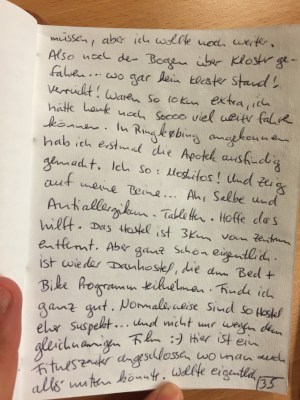 müssen, aber ich wollte noch weiter.
Also noch den Bogen über Kloster ge-
fahren... wo gar kein Kloster stand!
Verrückt! Waren so 10km extra, ich
hätte heute noch soooo viel weiter fahren
können. In Ringkøbing angekommen
hab ich erstmal die Apotek ausfindig
gemacht. Ich so: Moskitos! Und zeig
auf meine Beine... Ah, Salbe und
Antiallergikum-Tabletten. Hoffe das
hilft. Das Hostel ist 3km vom Zentrum
entfernt. Aber ganz schön eigentlich.
ist wieder Danhostel, die am Bed +
Bike Programm teilnehmen. Finde ich
ganz gut. Normalerweise sind so Hostel
eher suspekt... und nicht nur wegen dem
gleichnamigen Film :-) Hier ist ein
Fitnesszenter angeschlossen wo man auch
alles nutzen könnte. Wollte eigentlich
35